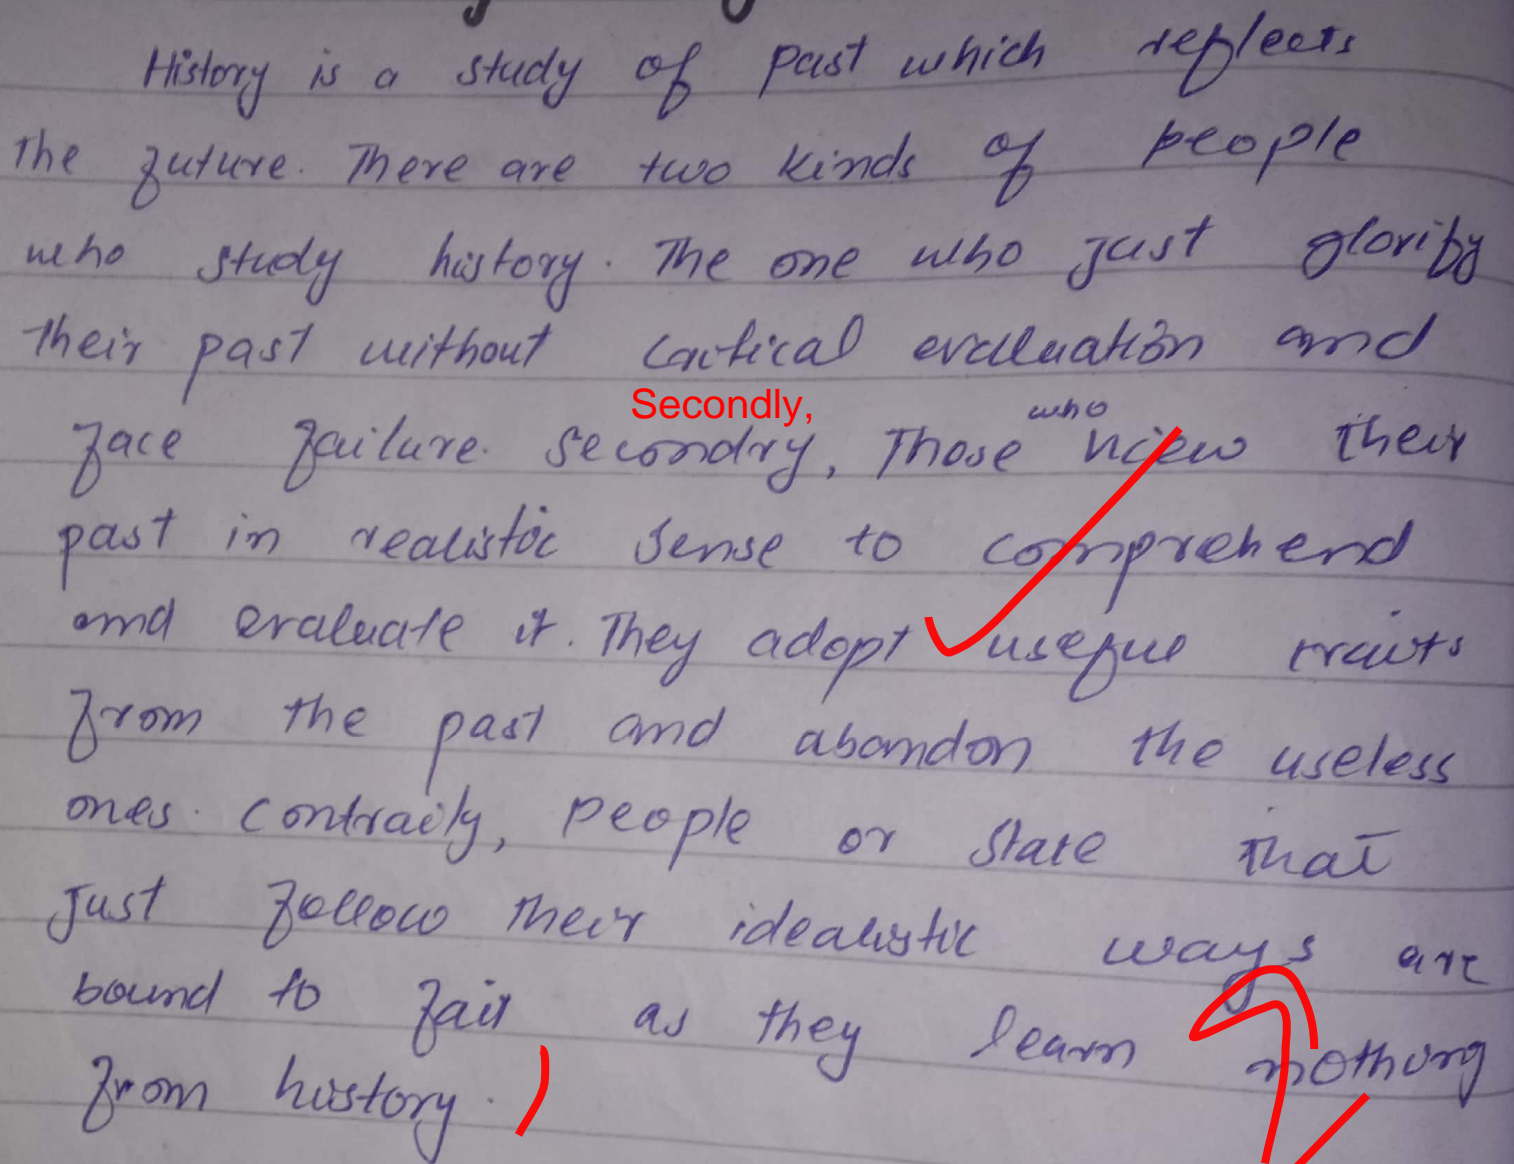 History is a study of past which reflects
the future. There are two kinds of people
who study history. The one who just glorify
their past without critical evaluation and
Secondly,
who
face failure. Secondry, Those view their
past in realistic sense to comprehend
and evaluate it. They adopt useful traits
from the past and abandon the useless
ones. Contraily, people or state that
just follow their idealistic ways are
bound to fail as they learn nothing
from history.